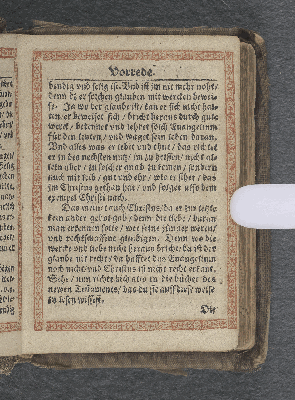 Vorrede.
bendig vnd selig ist. Vnd ist jm nit mehr noht /
denn dz er solchen glauben mit wercken bewei-
se. Ja wo der glaube ist / kan er sich nicht hal-
ten / er beweiset sich / bricht heraus durch gute
werck / bekennet vnd lehret solch Euangelium
für den leuten / vnd waget sein leben daran.
Vnd alles was er lebet vnd thut / das richtet
er zu des nechsten nutz / jm zu helffen / nicht al-
lein auch zu solcher gnad zu kommen / sondern
auch mit leib / gut vnd ehr / wie er sihet / das
jm Christus gethan hat / vnd folget also dem
exempel Christi nach.
Das meint auch Christus / da er zur letzte
kein ander gebot gab / denn die liebe / daran
man erkennen solte / wer seine jünger weren /
vnd rechtschaffene gleubigen. Denn wo die
werck vnd liebe nicht heraus bricht / da ist der
glaube nit recht / da hafftet das Euangelium
noch nicht vnd Christus ist nicht recht erkant.
Sihe / nun richte dich also in die bücher des
newen Testaments / das du sie auff diese weise
zu lesen wissest.
Die